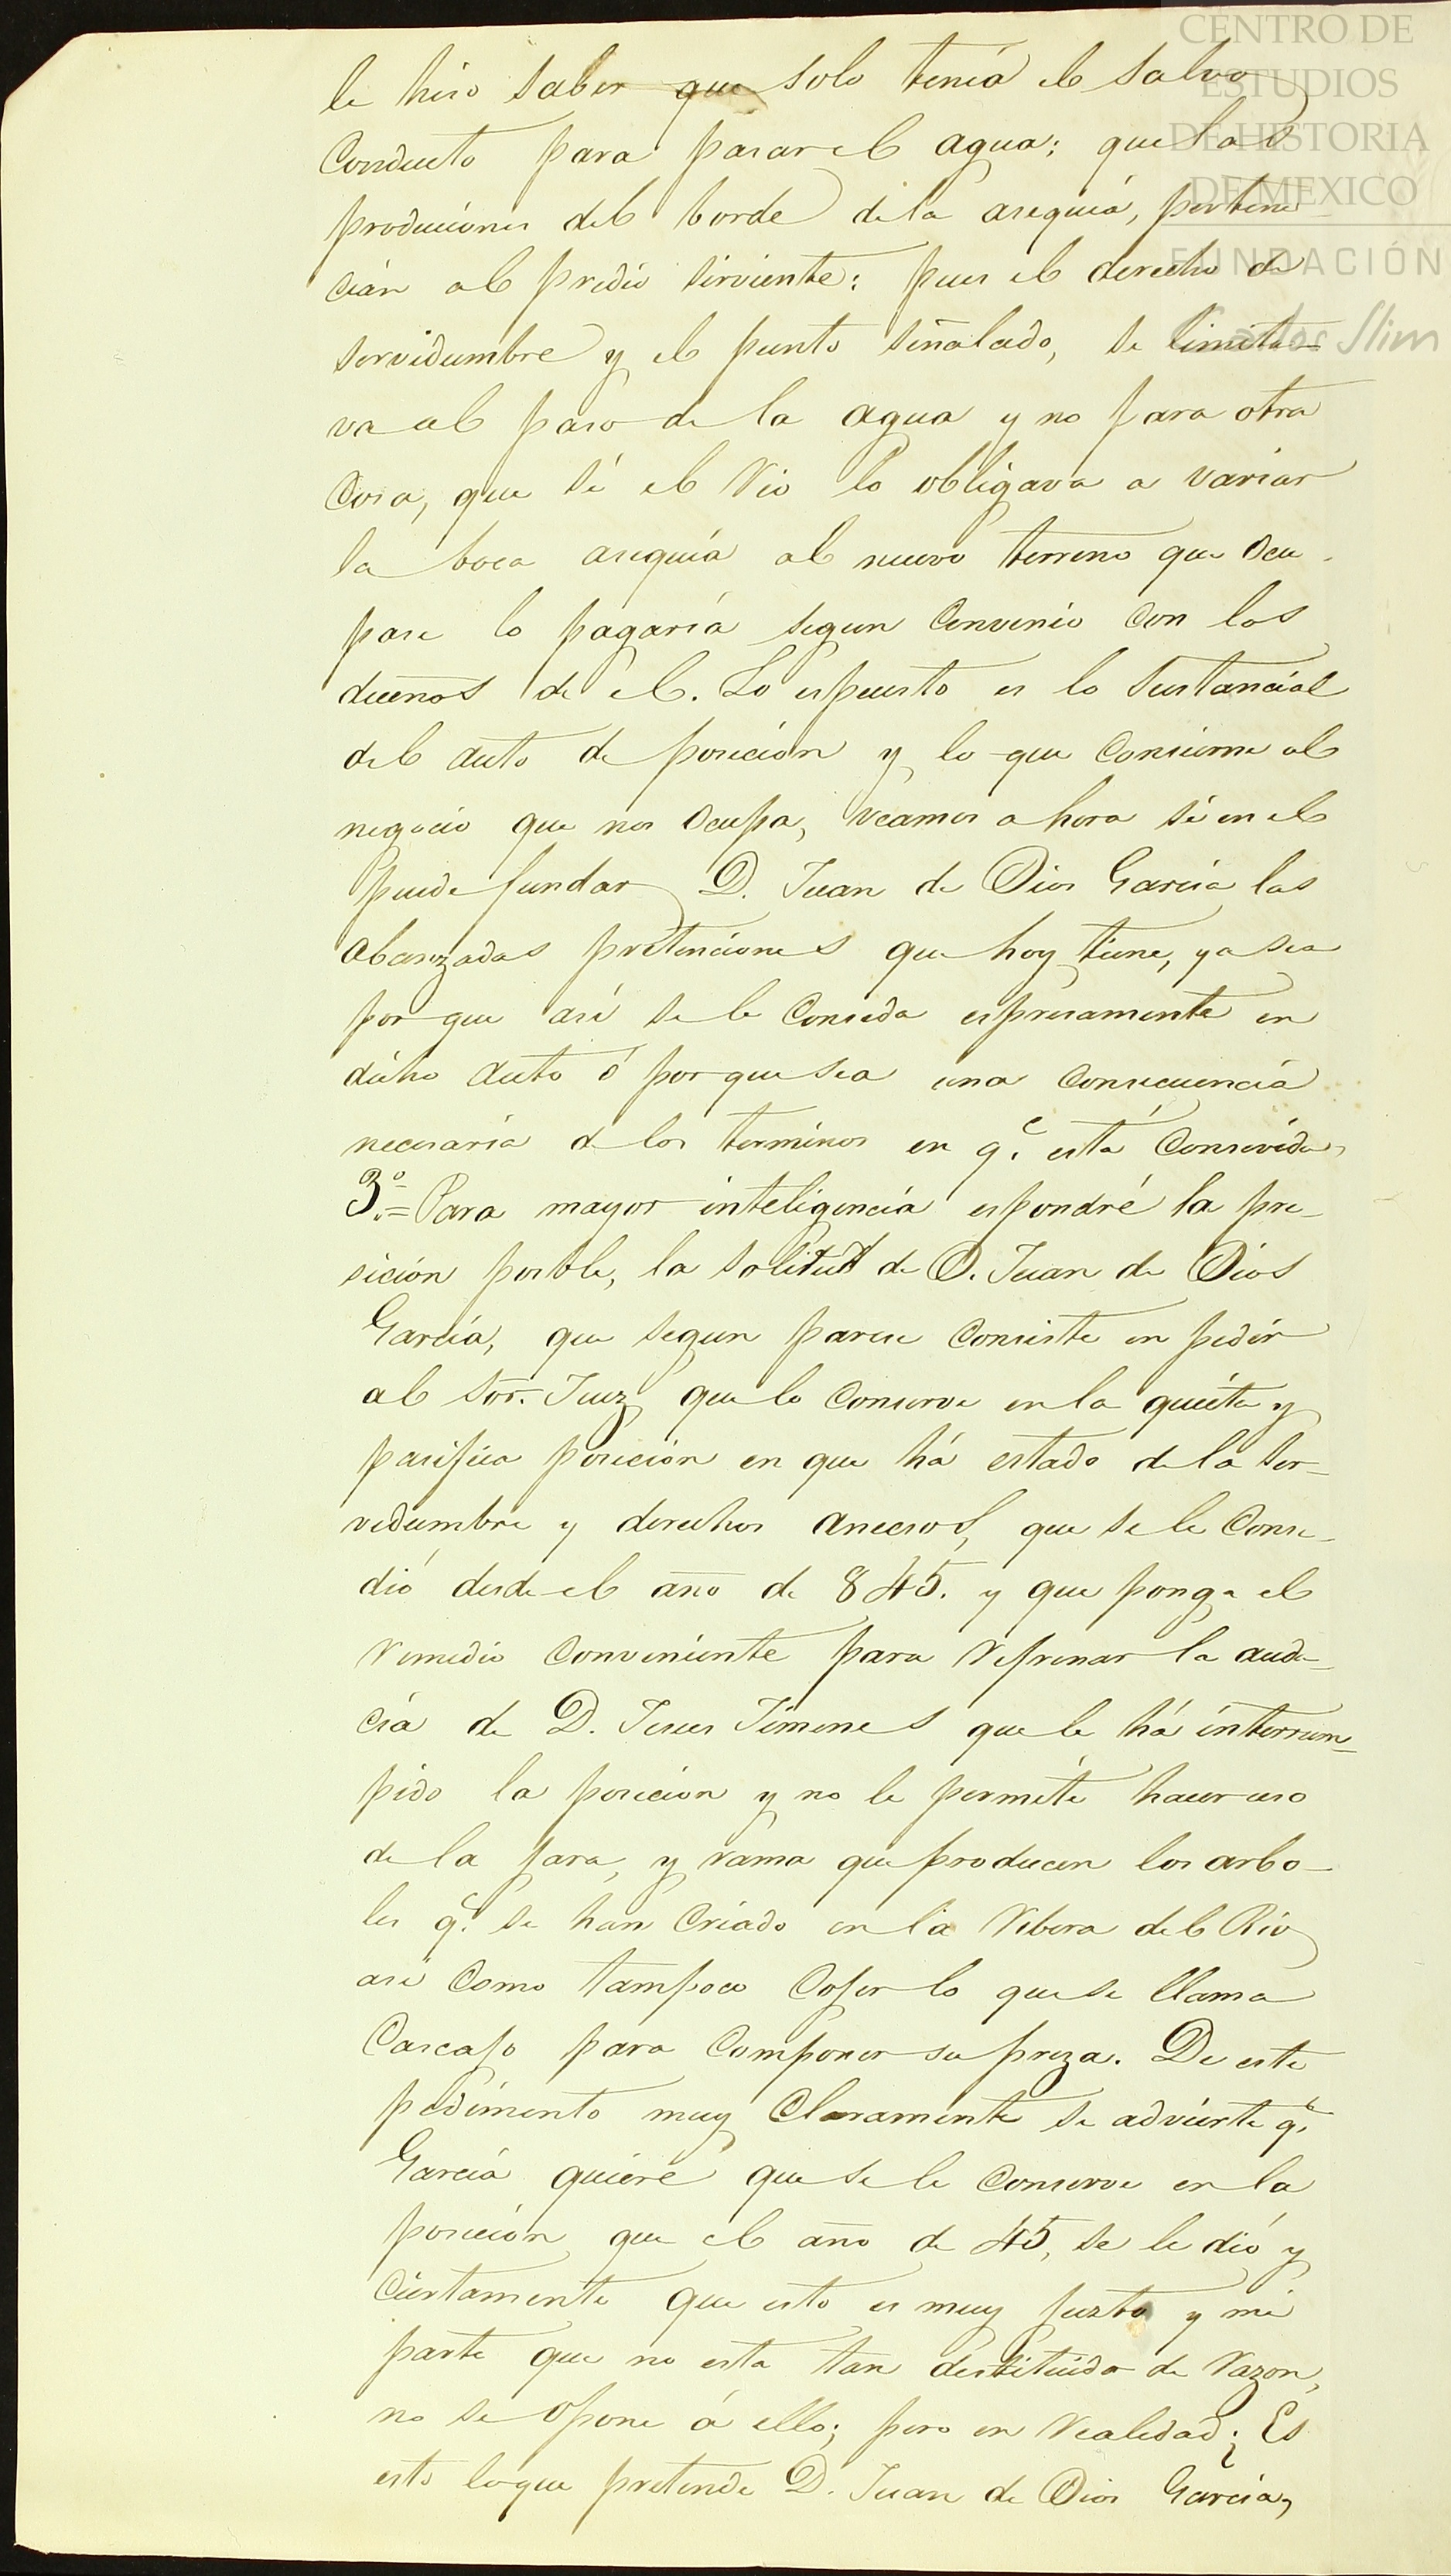 CENTRO DE
ESTUDIOS
DE HISTORIA
DE MEXICO
FUNDACIÓN
Carlos Slim
le hiso saber que solo tenía el salvo
Conducto para pasar el agua: que las
produciónes del borde de la asequia, pertene
cían al prédio sirviente: pues el derecho de
servidumbre y el punto señalado, se limita=
va al paso de la agua y no para otra
Cosa, que si el Rio lo obligava a variar
la boca asequia al nuevo terreno que ocu-
pase lo pagaría segun Convenio con los
dueños de el. Lo espuesto es lo sustancial
del auto de posecion y lo que Consierne al
negocio que nos ocupa, veamos ahora si en el
puede fundar D. Juan de Dios García las
abanzadas pretenciones que hoy tiene, ya sea
por que así se le Conseda espresamente en
dicho auto ó por que sea una Consecuencia
necesaria de los terminos en q.e está Consevida,
3.º= Para mayor inteligencia espondré la pre-
sición posible, la solicitud de D. Juan de Dios
García, que segun parese Consiste en pedir
al Sor. Juez que lo Conserve en la quieta y
pasifica posecion en que há estado de la ser-
vidumbre y derechos anecsos, que se le Conse-
dió desde el año de 845. y que ponga el
remedio Conveniente para refrenar la auda-
cia de D. Jesus Jimenes que le há interrum=
pido la posecion y no le permite hacer uso
de la jara, y rama que producen los arbo-
les q.e se han Criado en la Ribera del Rio
asi Como tampoco Cojer lo que se llama
Cascajo para Componer su preza. De este
pedimento muy Claramente se advierte q.e
García quiere que se le Conserve en la
posecion que el año de 45, se le dió y
Ciertamente que esto es muy justo y mi
parte que no esta tan destituido de razon,
no se opone á ello; pero en realidad ¿Es
esto lo que pretende D. Juan de Dios García,